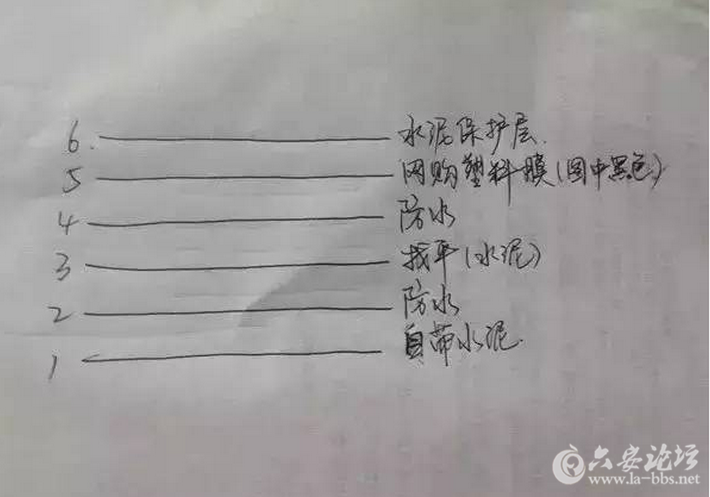 6. 水泥保护层.
5 网购塑料膜(图中黑色)
4 防水
3 找平(水泥)
2 防水
1 自带水泥.
六安论坛
www.la-bbs.net